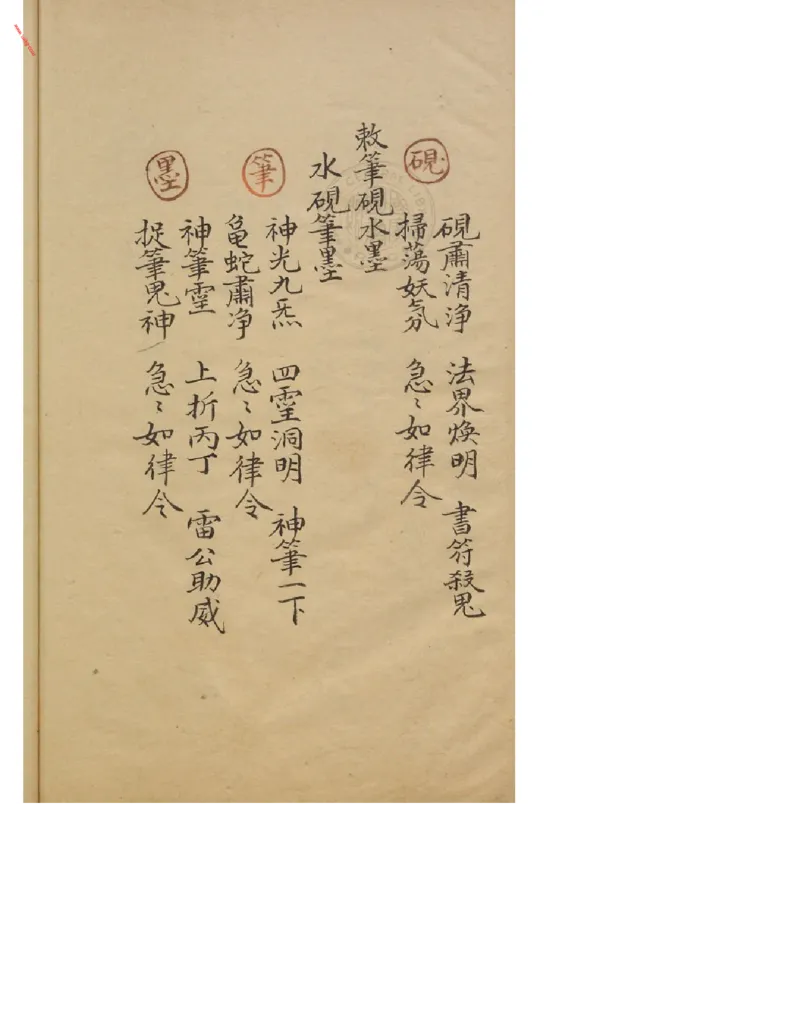 硯
硯肅清浄　法界煥明　書符殺鬼
掃蕩妖氛　急〻如律令
敕筆硯水墨
水硯筆墨
筆
神光九炁　四靈洞明　神筆一下
龜蛇肅净　急〻如律令
墨
神筆靈　上折丙丁　雷公助威
捉筆鬼神　急〻如律令